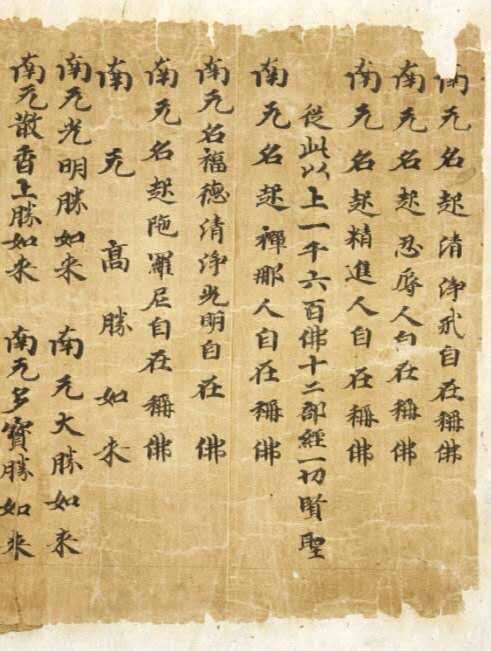 南无名起清淨戒自在稱佛
南无名起忍辱人自在稱佛
南无名起精進人自在稱佛
從此以上一千六百佛十二部經一切賢聖
南无名起禪那人自在稱佛
南无名福德清淨光明自在佛
南无名起陁羅尼自在稱佛
南无高勝如来
南无光明勝如来 南无大勝如来
南无散香上勝如来 南无多寳勝如来